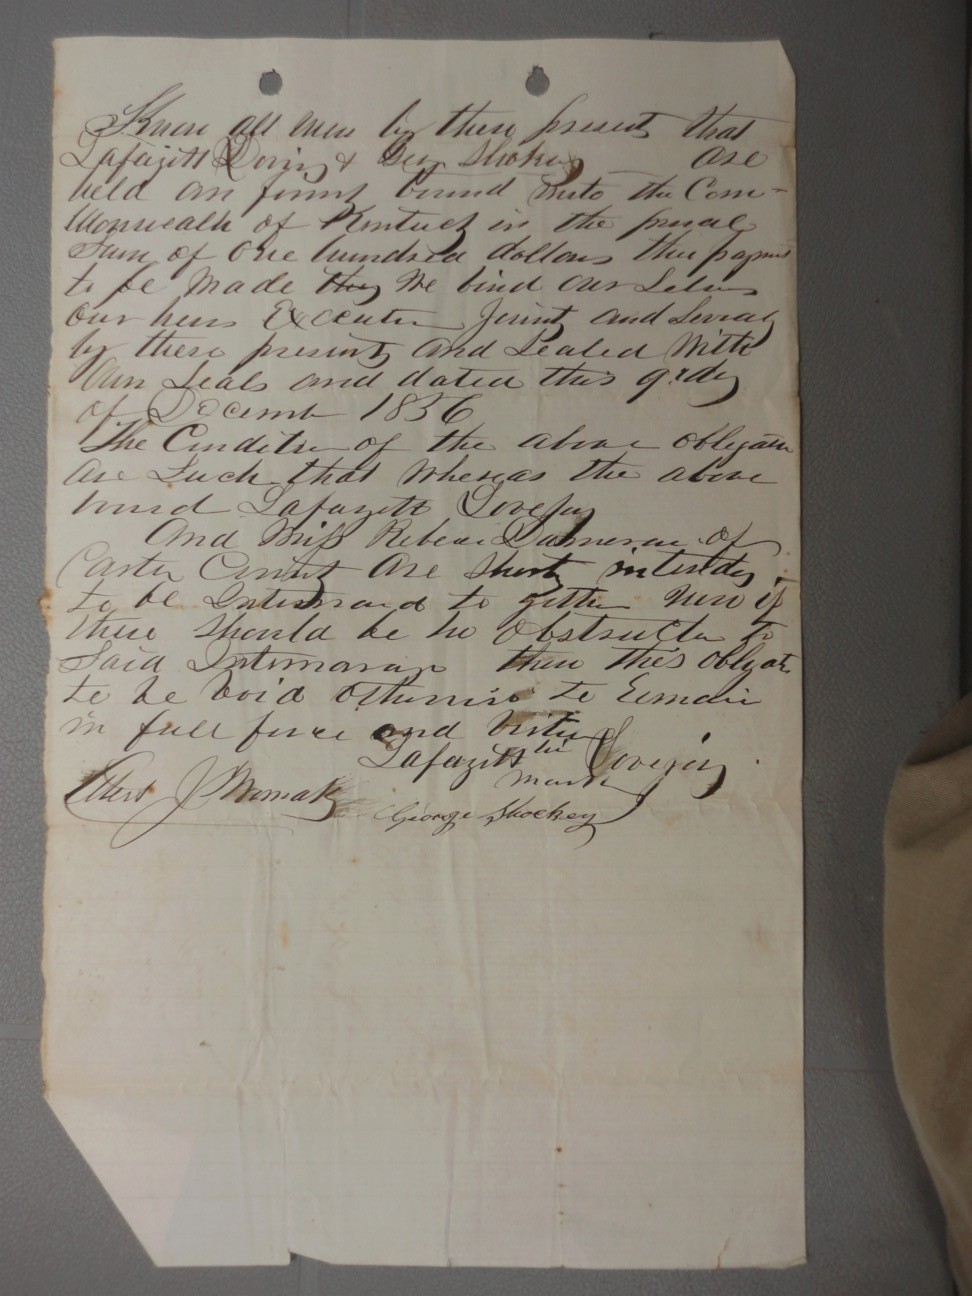 Know all men by these present that
Lafayett & Geo Shokey are
held an firmly bound unto the Com-
monwealh of Kentucky in the penal
Sum of One hundred dollars the payment
to be made they We bind our Selves
our heirs Executor Jointly and Severaly
by these presents and Sealed With
Our Seals and dated this day
of Decemb 1856
The Condition of the above obligation
are Such that Whereas the above
bound Lafayett Lovejoy
And Miss Rebeca of
Carter County are Shortly
to be to gether Now if
there Should be no Obstruction to
Said then this obligation
to be Void Otherwise to Remain
in full force and Virtue
Lafayett his Lovejoy
mark
Attest J Womack
George Shockey